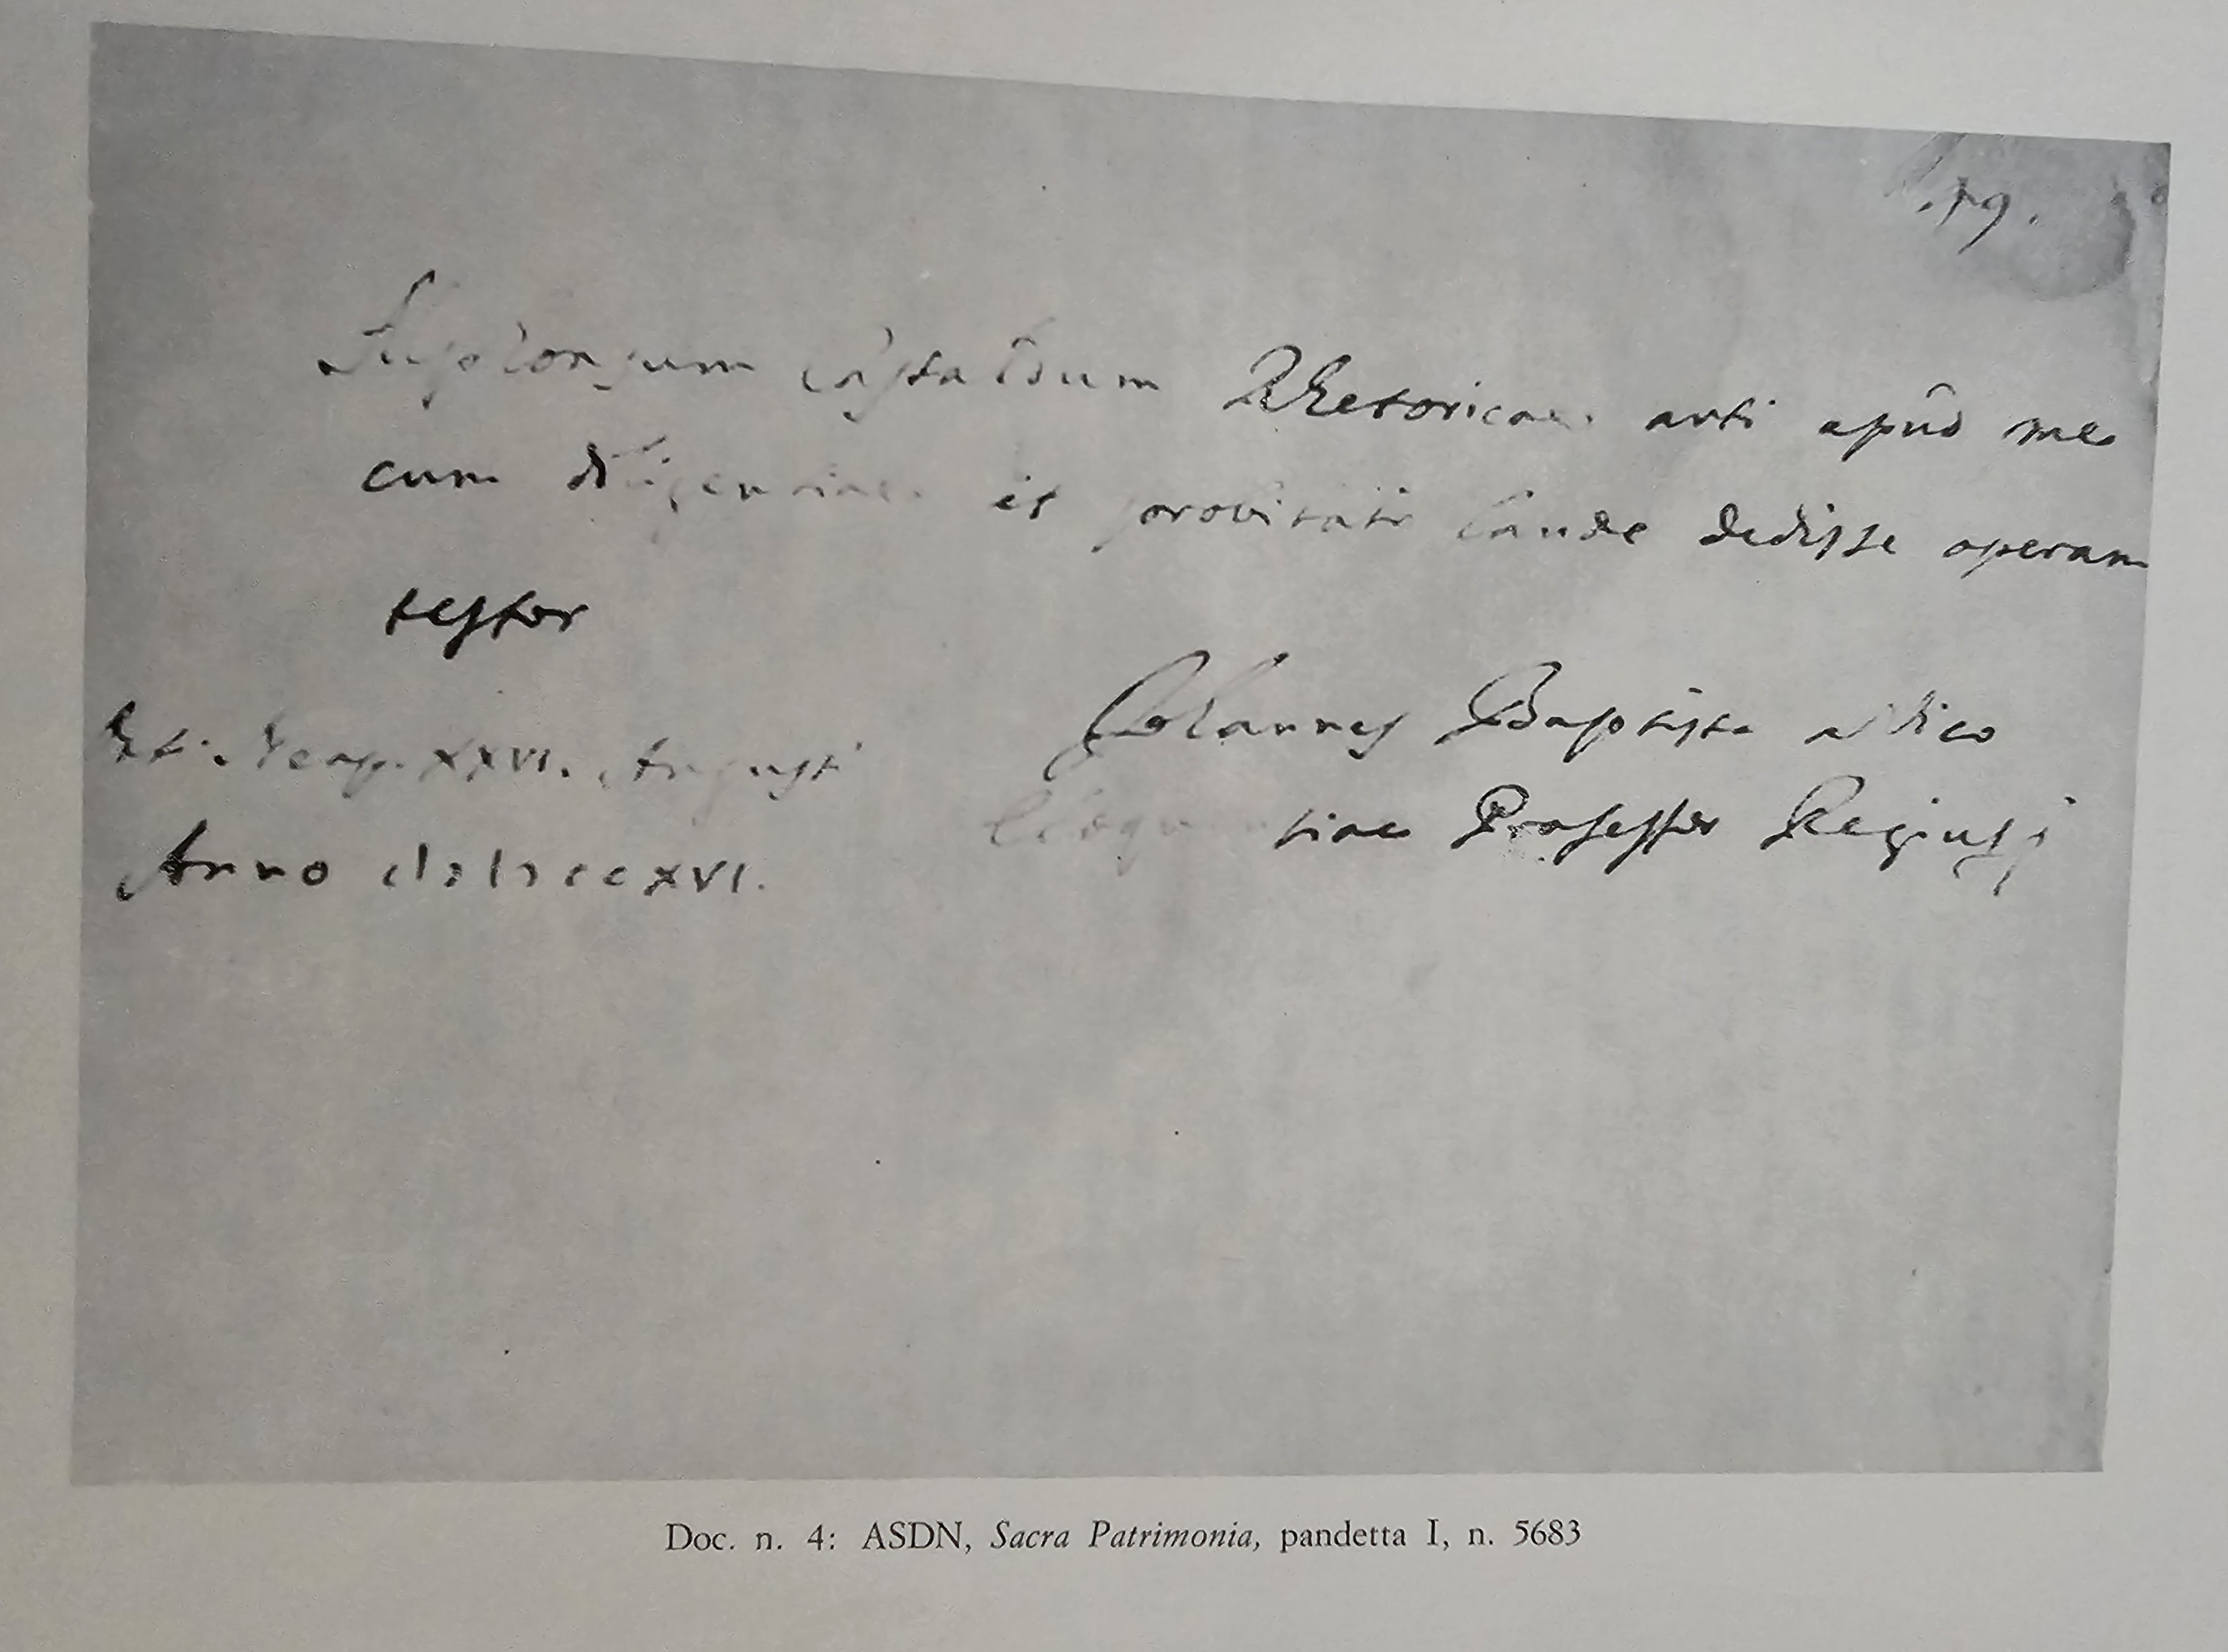 .79.
Rhetoricae arti apud me
cum diligentiae et probitatis laude dedisse operam
testor
Iohannes Baptista a Vico
Eloquentiae Professor Regius
Dat. Neap. XXVI. Augusti
Anno cIↄIↄccXVI.
Doc. n. 4: ASDN, Sacra Patrimonia, pandetta I, n. 5683